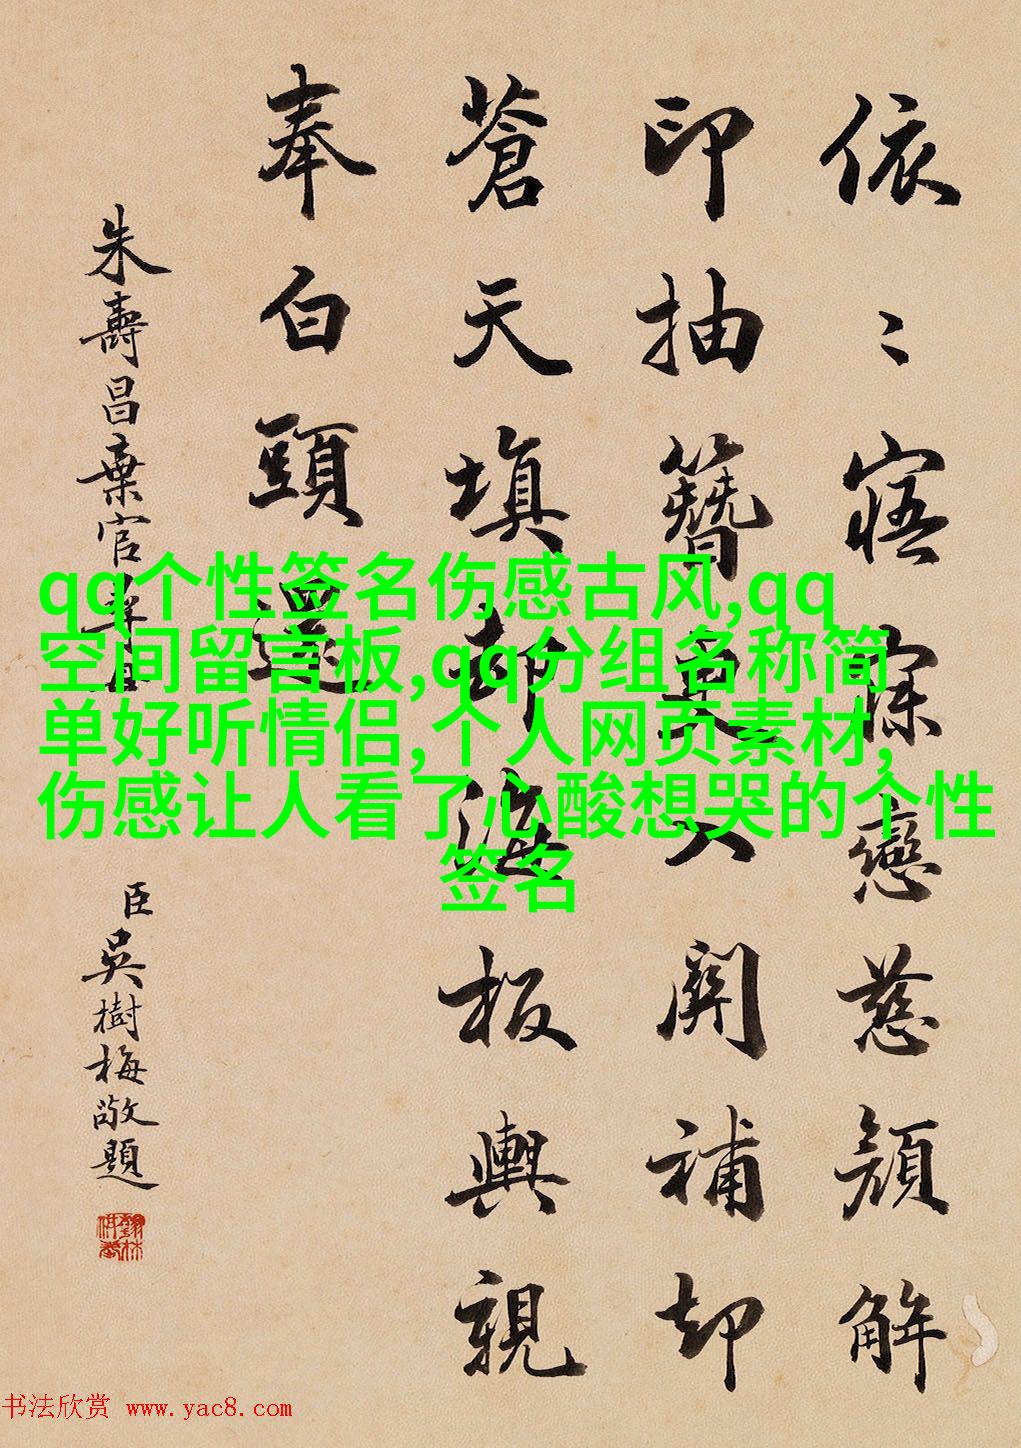 依〻寤寐戀慈顏解
印抽簪更入關補却
蒼天填却海板輿親
奉白頭還
朱壽昌棄官尋母
臣吳樹梅敬題
qq个性签名伤感古风,qq
空间留言板,qq分组名称简
单好听情侣,个人网页素材,
伤感让人看了心酸想哭的个性
签名
书法欣赏 www.yac8.com